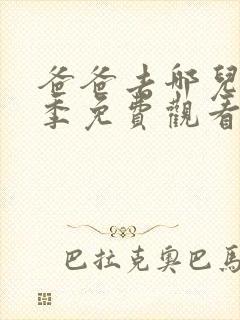 爸爸去哪兒
季免費觀看
巴拉克奧巴馬